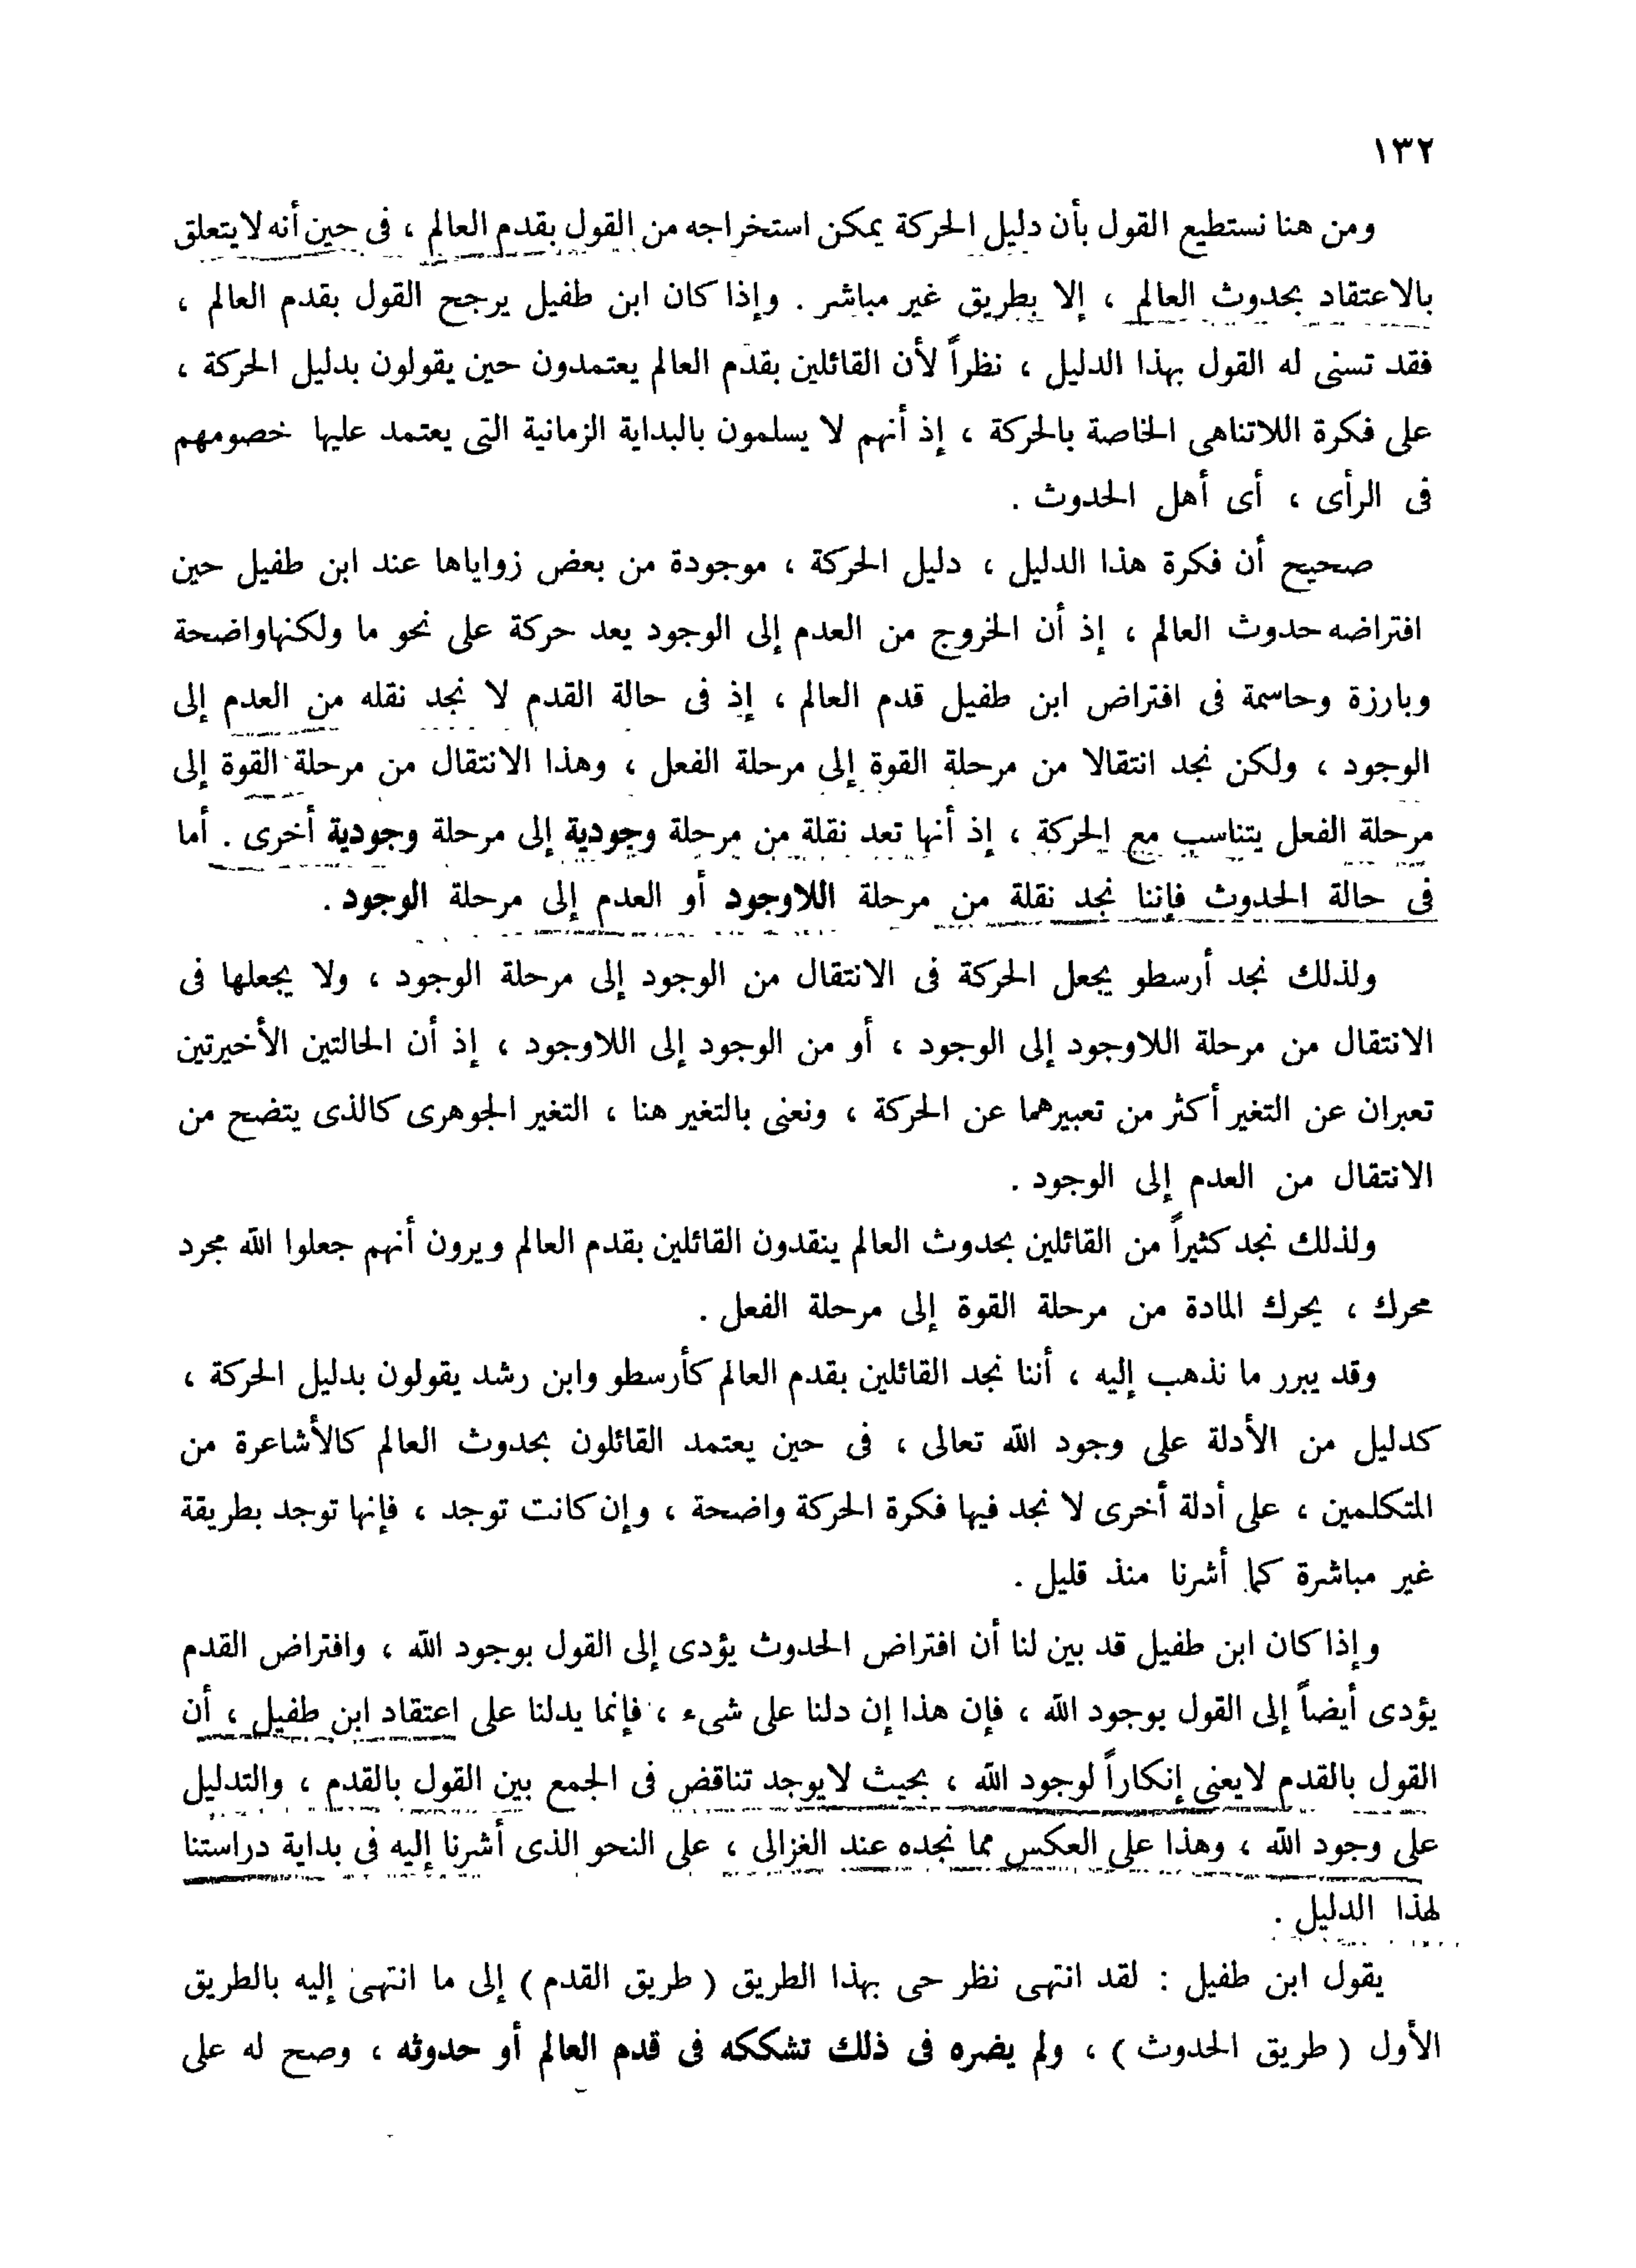 ١٣٢
ومن هنا نستطيع القول بأن دليل الحركة يمكن استخراجه من القول بقدم العالم ، فى حين أنه لا يتعلق
بالاعتقاد بحدوث العالم ، إلا بطريق غير مباشر . وإذا كان ابن طفيل يرجح القول بقدم العالم ،
فقد تسنى له القول بهذا الدليل ، نظراً لأن القائلين بقدم العالم يعتمدون حين يقولون بدليل الحركة ،
على فكرة اللاتناهى الخاصة بالحركة ، إذ أنهم لا يسلمون بالبداية الزمانية التى يعتمد عليها خصومهم
فى الرأى ، أى أهل الحدوث .
صحيح أن فكرة هذا الدليل ، دليل الحركة ، موجودة من بعض زواياها عند ابن طفيل حين
افتراضه حدوث العالم ، إذ أن الخروج من العدم إلى الوجود يعد حركة على نحو ما ولكنها واضحة
وبارزة وحاسمة فى افتراض ابن طفيل قدم العالم ، إذ فى حالة القدم لا نجد نقله من العدم إلى
الوجود ، ولكن نجد انتقالا من مرحلة القوة إلى مرحلة الفعل ، وهذا الانتقال من مرحلة القوة إلى
مرحلة الفعل يتناسب مع الحركة ، إذ أنها تعد نقلة من مرحلة وجودية إلى مرحلة وجودية أخرى . أما
فى حالة الحدوث فإننا نجد نقلة من مرحلة اللاوجود أو العدم إلى مرحلة الوجود .
ولذلك نجد أرسطو يجعل الحركة فى الانتقال من الوجود إلى مرحلة الوجود ، ولا يجعلها فى
الانتقال من مرحلة اللاوجود إلى الوجود ، أو من الوجود إلى اللاوجود ، إذ أن الحالتين الأخيرتين
تعبران عن التغير أكثر من تعبيرهما عن الحركة ، ونعنى بالتغير هنا ، التغير الجوهرى كالذى يتضح من
الانتقال من العدم إلى الوجود .
ولذلك نجد كثيراً من القائلين بحدوث العالم ينقدون القائلين بقدم العالم ويرون أنهم جعلوا الله مجرد
محرك ، يحرك المادة من مرحلة القوة إلى مرحلة الفعل .
وقد يبرر ما نذهب إليه ، أننا نجد القائلين بقدم العالم كأرسطو وابن رشد يقولون بدليل الحركة ،
كدليل من الأدلة على وجود الله تعالى ، فى حين يعتمد القائلون بحدوث العالم كالأشاعرة من
المتكلمين ، على أدلة أخرى لا نجد فيها فكرة الحركة واضحة ، وإن كانت توجد ، فإنها توجد بطريقة
غير مباشرة كما أشرنا منذ قليل .
وإذا كان ابن طفيل قد بين لنا أن افتراض الحدوث يؤدى إلى القول بوجود الله ، وافتراض القدم
يؤدى أيضاً إلى القول بوجود الله ، فإن هذا إن دلنا على شىء ، فإنما يدلنا على اعتقاد ابن طفيل ، أن
القول بالقدم لايعنى إنكاراً لوجود الله ، بحيث لايوجد تناقض فى الجمع بين القول بالقدم ، والتدليل
على وجود الله ، وهذا على العكس مما نجده عند الغزالى ، على النحو الذى أشرنا إليه فى بداية دراستنا
لهذا الدليل .
يقول ابن طفيل : لقد انتهى نظر حى بهذا الطريق ( طريق القدم ) إلى ما انتهى إليه بالطريق
الأول ( طريق الحدوث ) ، ولم يضره فى ذلك تشككه فى قدم العالم أو حدوثه ، وصح له على